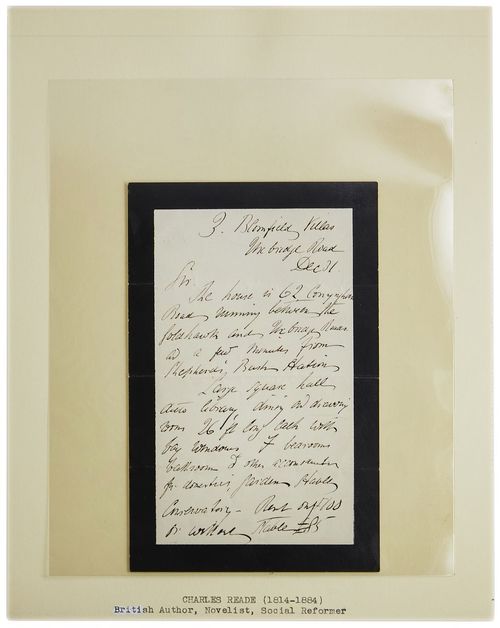 3. Blomfield Villas
Uxbridge Road
Dec 31.
Sir
The house is 62 Coningham
Road running between the
Goldhawk and Uxbridge Roads
and a few minutes from
Shepherds Bush Station
Large square hall
library dining and drawing
rooms 26 ft long each with
bay windows 7 bedrooms
bathroom & other
for domestics, garden Stable
Conservatory - Rent £100
or without Stable £85
CHARLES READE (1814-1884)
British Author, Novelist, Social Reformer